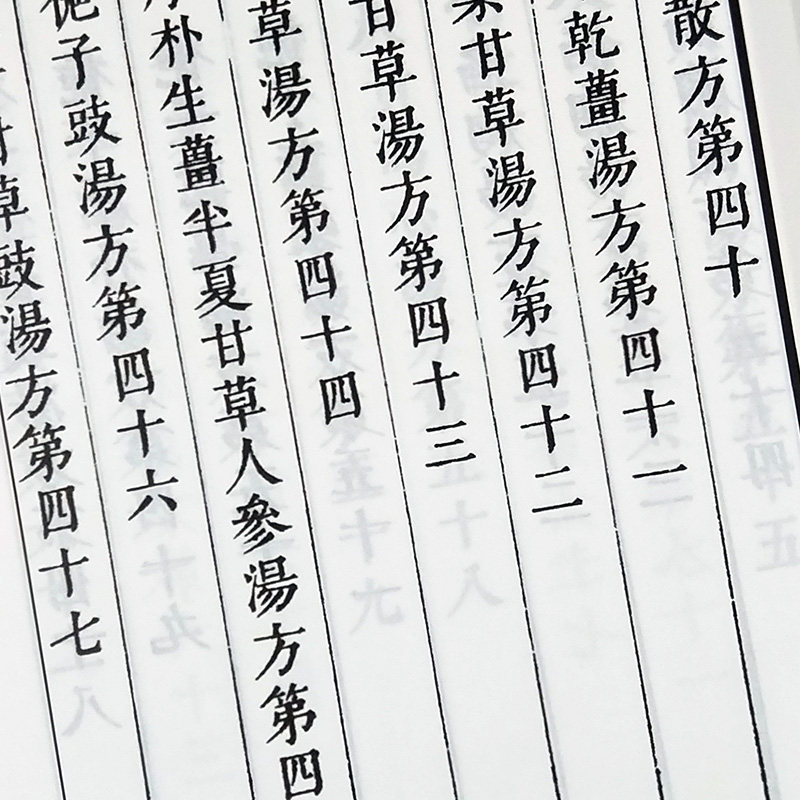 散方第四十
乾薑湯方第四十一
甘草湯方第四十二
甘草湯方第四十三
草湯方第四十四
朴生薑半夏甘草人參湯方第四
梔子豉湯方第四十六
甘草豉湯方第四十七